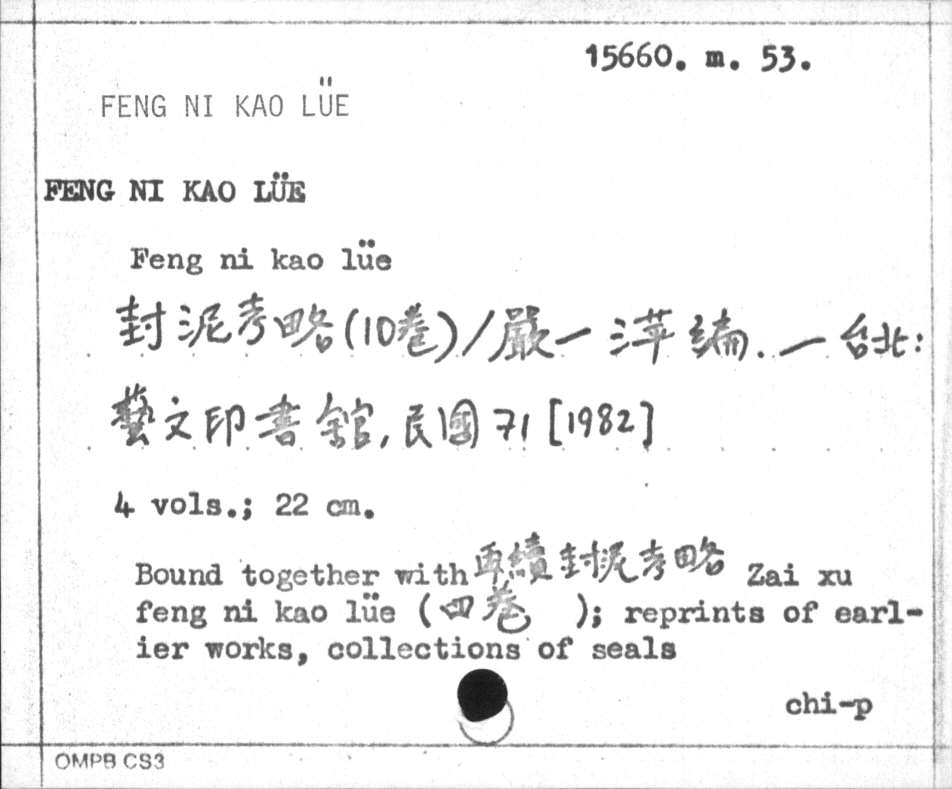 15660. m. 53.
FENG NI KAO LÜE
FENG NI KAO LÜE
Feng ni kao lüe
封泥考略(10卷)/嚴一萍編.一台北:
藝文印書館,民國71[1982]
4 vols.; 22 cm.
Bound together with再續封泥考略 Zai xu
feng ni kao lüe (四卷 ); reprints of earl-
ier works, collections of seals
chi-p
OMPB CS3